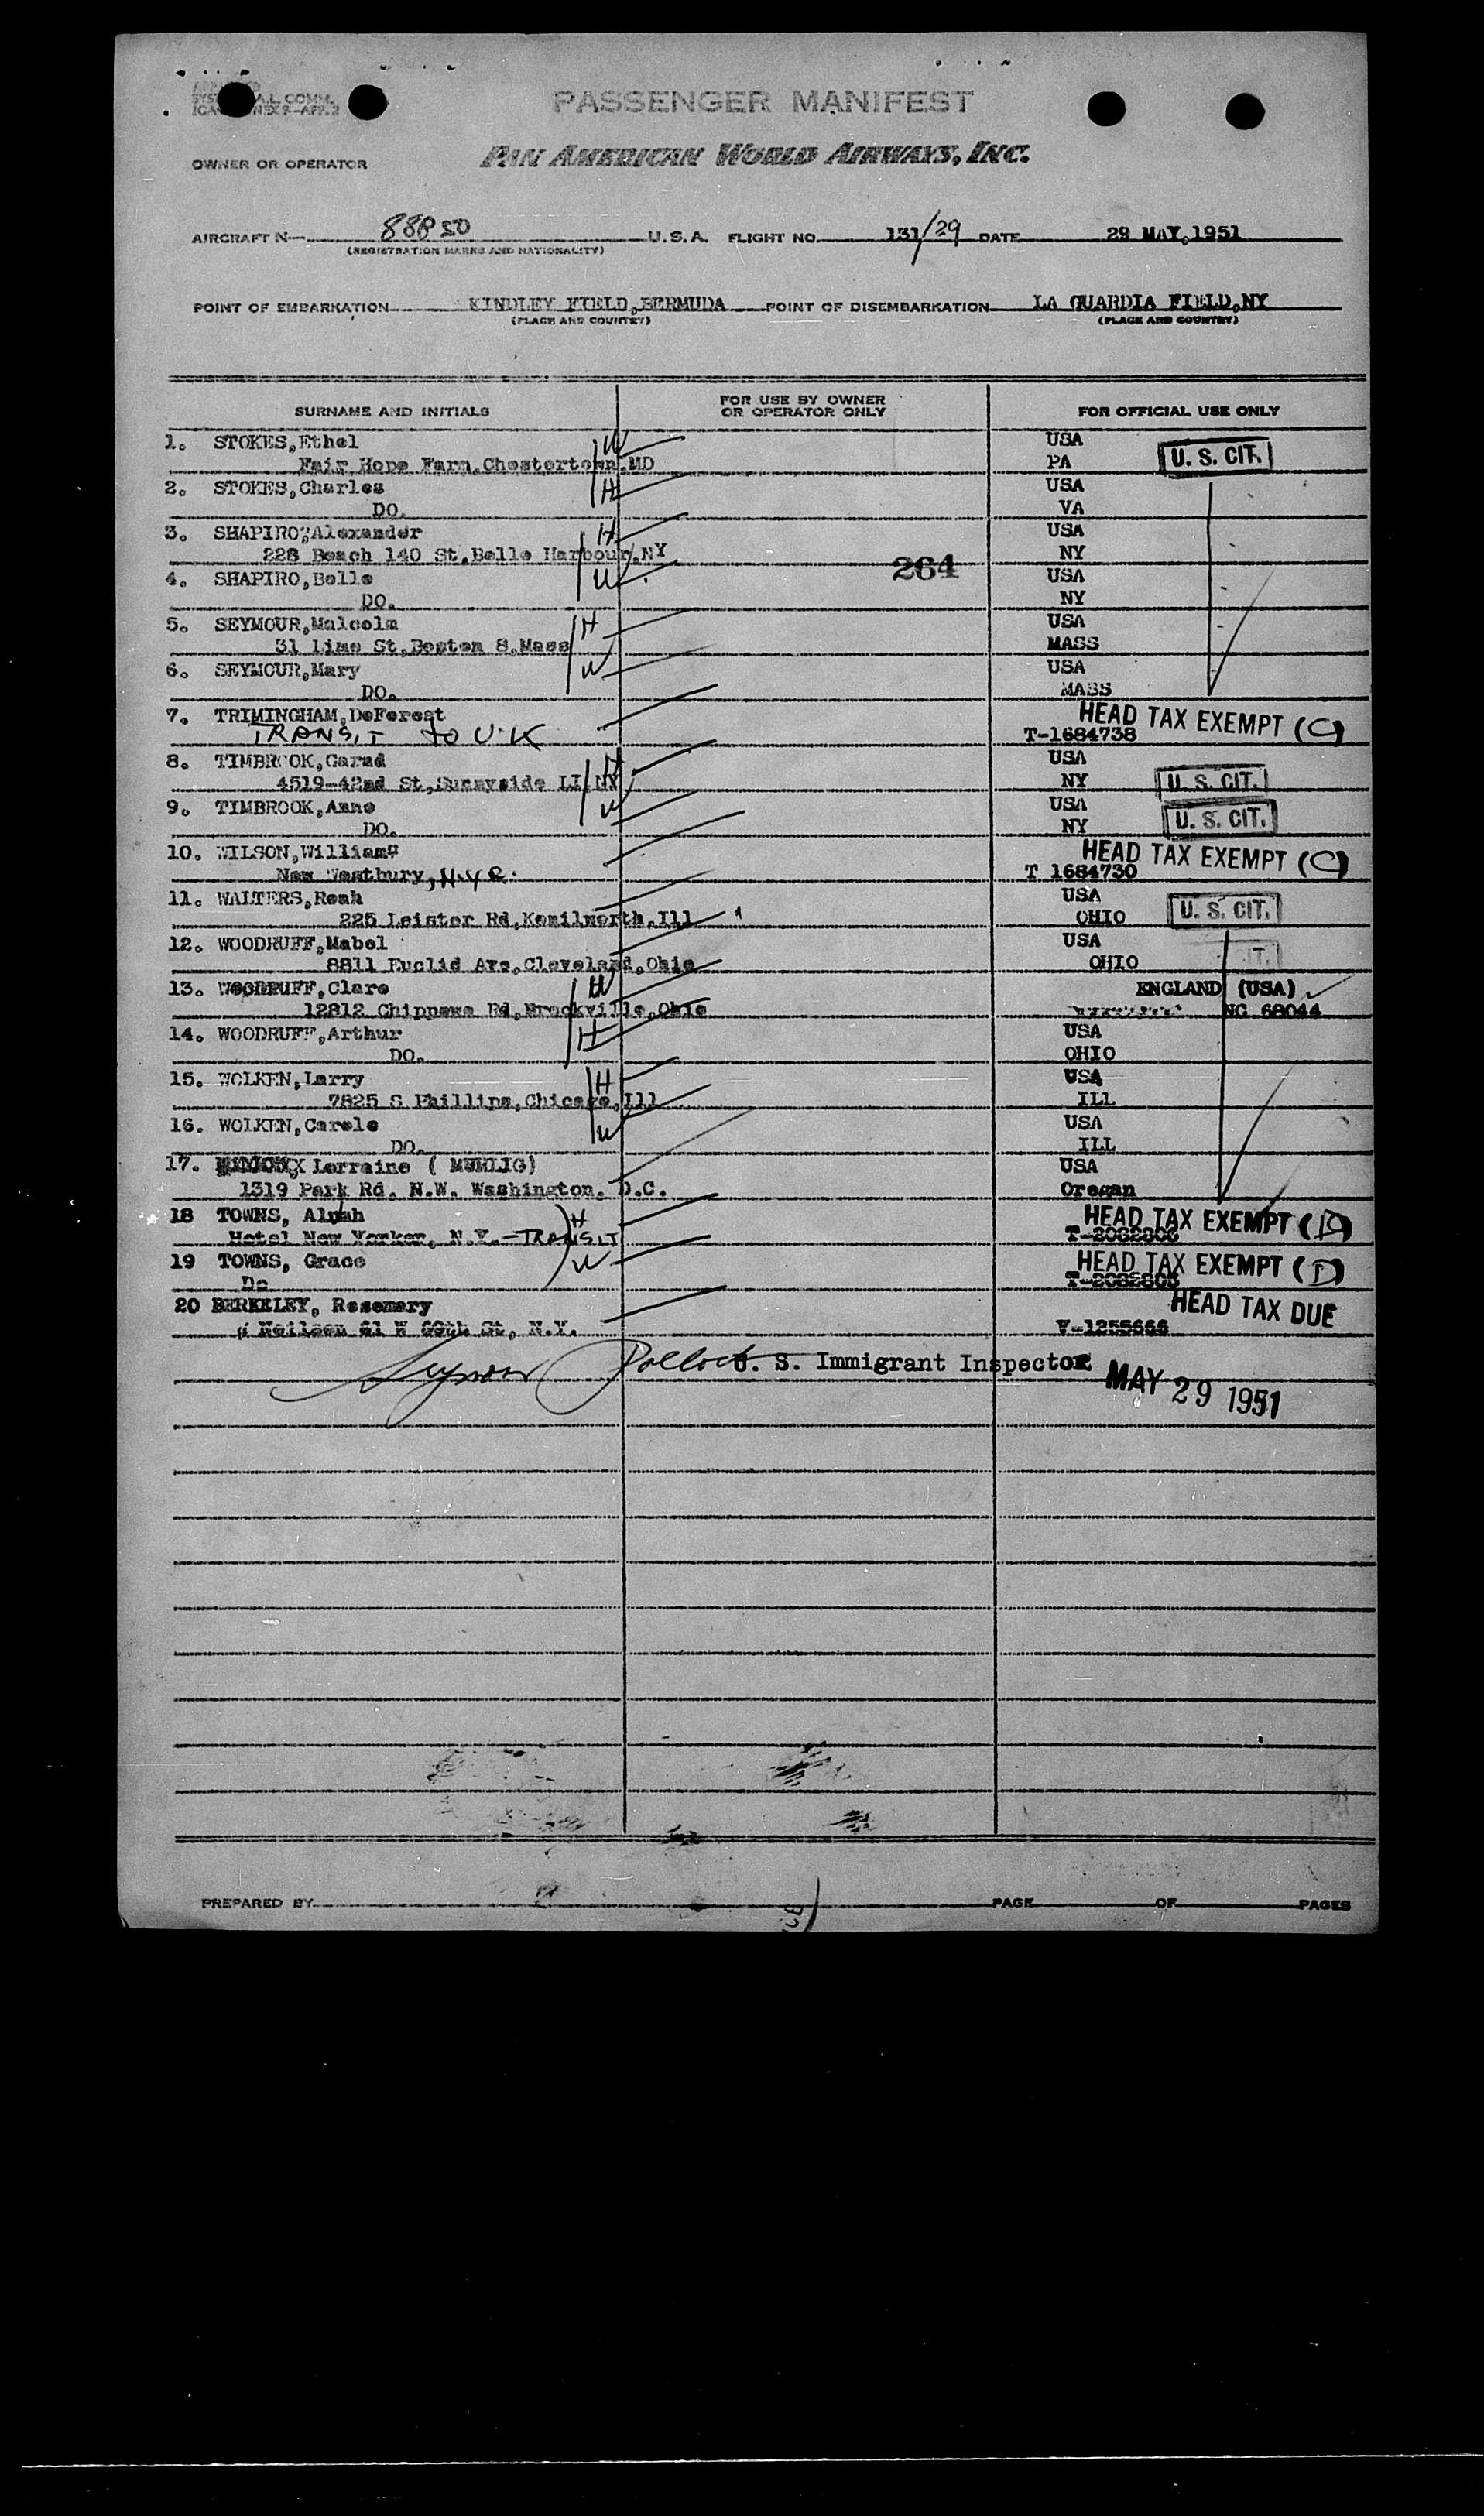 PASSENGER MANIFEST
OWNER OR OPERATOR PAN AMERICAN WORLD AIRWAYS, INC.
AIRCRAFT N— U.S.A. FLIGHT NO. 131/29 DATE 29 MAY,1951
(REGISTRATION MARKS AND NATIONALITY)
POINT OF EMBARKATION KINDLEY FIELD,BERMUDA POINT OF DISEMBARKATION LA GUARDIA FIELD,NY
(PLACE AND COUNTRY) (PLACE AND COUNTRY)
SURNAME AND INITIALS FOR USE BY OWNER OR OPERATOR ONLY FOR OFFICIAL USE ONLY
1. STOKES,Ethel W USA
Fair Hope Farm,Chestertown,MD PA U. S. CIT.
2. STOKES,Charles H USA
DO. VA
3. SHAPIRO,Alexander H USA
228 Beach 140 St,Belle Harbour,NY NY
264
4. SHAPIRO,Belle W USA
DO. NY
5. SEYMOUR,Malcolm H USA
31 Lime St,Boston 8,Mass MASS
6. SEYMOUR,Mary W USA
DO. MASS
7. TRIMINGHAM,DeForest HEAD TAX EXEMPT (C)
TRANSIT TO U.K T-1684738
8. TIMBROOK,Garad H USA
4519-42nd St,Sunnyside LI,NY NY U. S. CIT.
9. TIMBROOK,Anne W USA
DO. NY U. S. CIT.
10. WILSON,William HEAD TAX EXEMPT (C)
New Westbury, T 1684730
11. WALTERS,Reah USA
225 Leister Rd,Kenilworth,Ill OHIO U. S. CIT.
12. WOODRUFF,Mabel USA
8811 Euclid Ave,Cleveland,Ohio OHIO
13. WOODRUFF,Clare W ENGLAND (USA)
12812 Chippewa Rd,Brockville,Ohio NC 68044
14. WOODRUFF,Arthur H USA
DO. OHIO
15. WOLKEN,Larry H USA
7825 S Phillips,Chicago,Ill ILL
16. WOLKEN,Carole W USA
DO. ILL
17. Lorraine ( MUHLIG) USA
1319 Park Rd. N.W. Washington, D.C. Oregan
18 TOWNS, H HEAD TAX EXEMPT (D)
Hotel New Yorker, N.Y.—TRANSIT T-2082806
19 TOWNS, Grace W HEAD TAX EXEMPT (D)
Do T-2082805
20 BERKELEY, Rosemary HEAD TAX DUE
Neilsen 61 W St, N.Y. V-1255666
Pollock U. S. Immigrant Inspector
MAY 29 1951
PREPARED BY PAGE OF PAGES